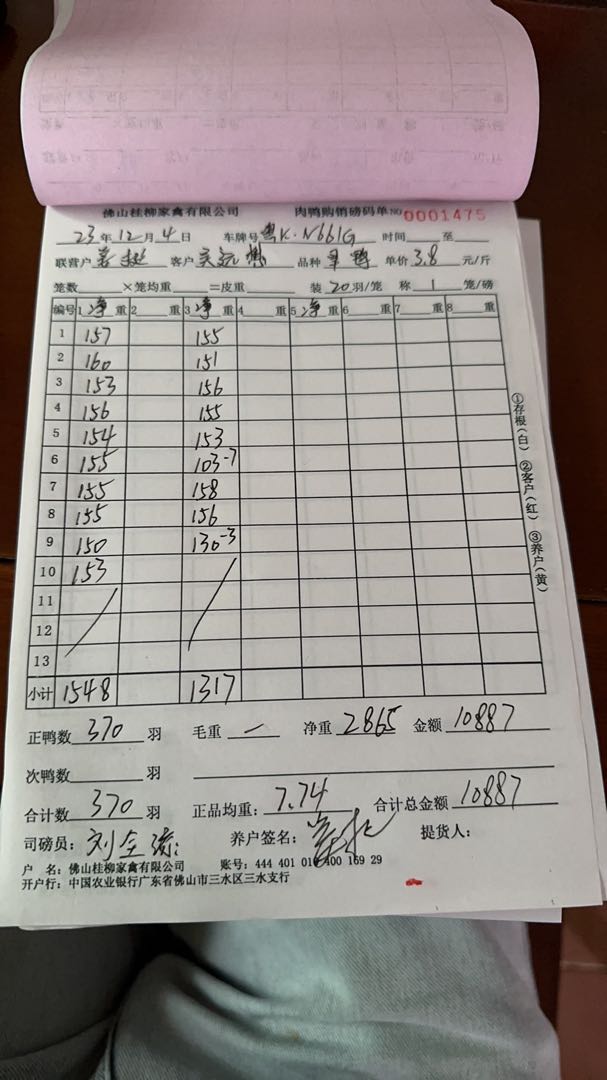 佛山桂柳家禽有限公司 肉鸭购销磅码单 NO 0001475
23年12月4日 车牌号 粤K·N661G 时间 至
联营户 客户 品种 单价 3.8 元/斤
笼数 ×笼均重 =皮重 装 20 羽/笼 称 1 笼/磅
编号 1 净 重 2 重 3 净 重 4 重 5 净 重 6 重 7 重 8 重
1 157 155
2 160 151
3 153 156
4 156 155
5 154 153
6 155 103-7
7 155 158
8 155 156
9 150 130-3
10 153
11
12
13
小计 1548 1317
①存根(白) ②客户(红) ③养户(黄)
正鸭数 370 羽 毛重 — 净重 2865 金额 10887
次鸭数 羽
合计数 370 羽 正品均重: 7.74 合计总金额 10887
司磅员: 刘 养户签名: 提货人:
户 名: 佛山桂柳家禽有限公司 账号: 444 401 010 400 169 29
开户行: 中国农业银行广东省佛山市三水区三水支行